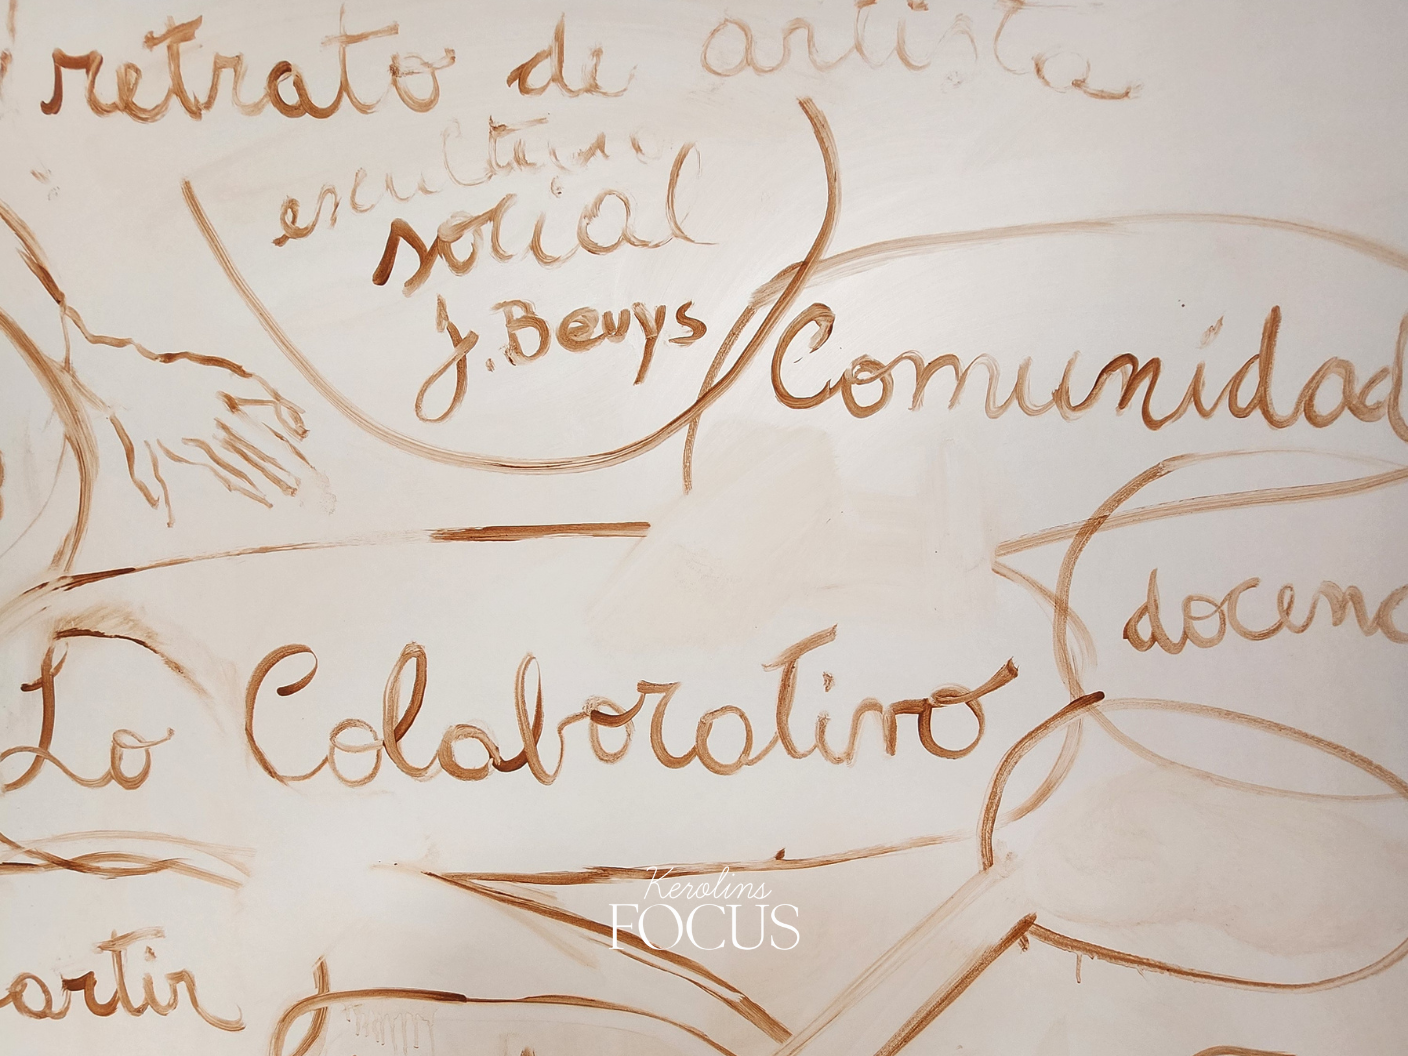 retrato de artista
escultura
social
J. Beuys
Comunidad
docenc
Lo Colaborativo
Kerolins
FOCUS
artir